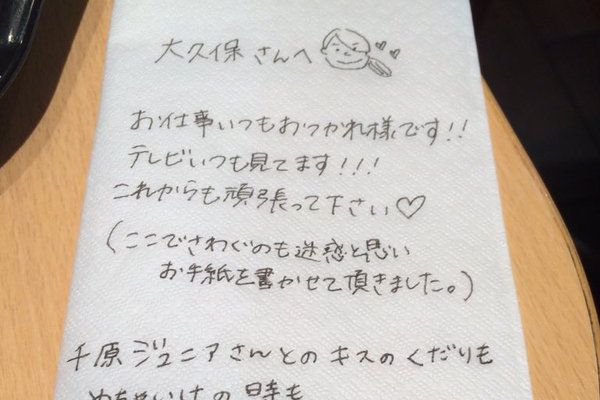 大久保さんへ
お仕事いつもおつかれ様です!!
テレビいつも見てます!!!
これからも頑張って下さい♡
(ここでさわぐのも迷惑と思い
お手紙を書かせて頂きました。)
千原ジュニアさんとのキスのくだりも
めちゃイケの時も